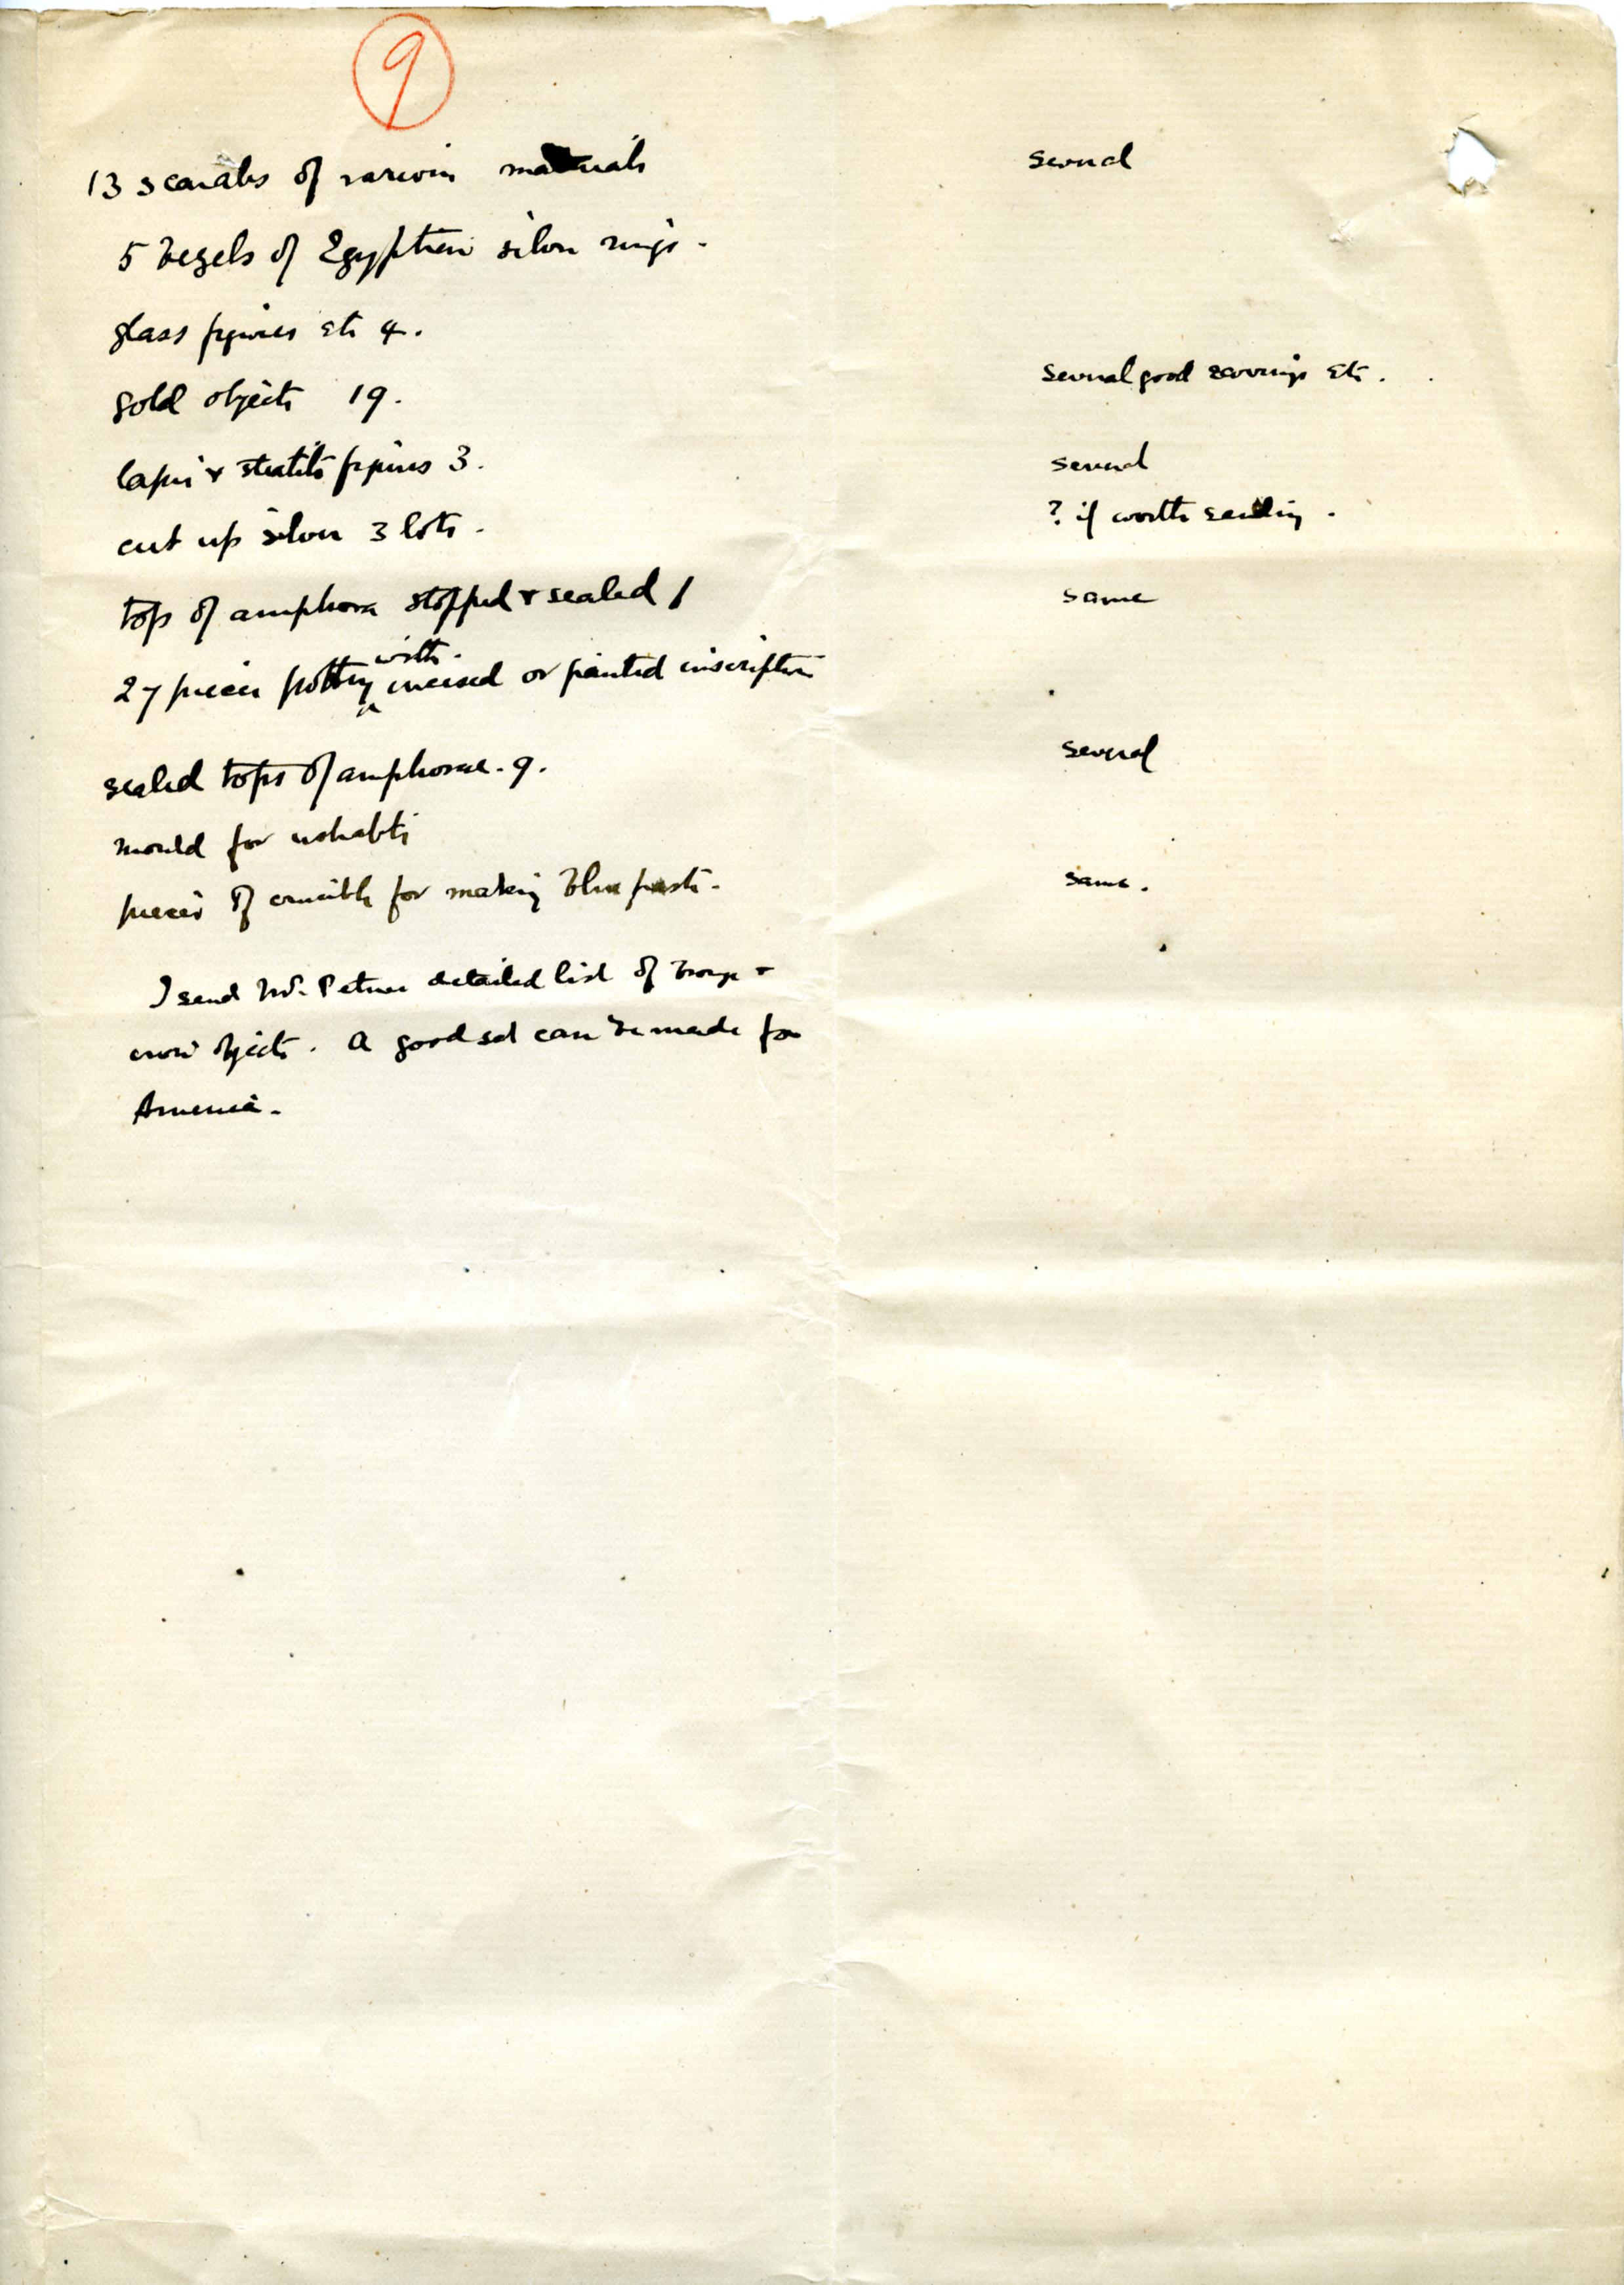 9
13 scarabs of various materials several
5 bezels of Egyptian silver rings.
glass figures etc 4.
gold objects 19. several good earrings etc.
lapis & steatite figures 3. several
cut up silver 3 lots. ? if worth sending.
top of amphora stopped & sealed 1 same
with
27 pieces pottery ^ incised or painted inscription
sealed tops of amphorae. 9. several
mould for ushabti
pieces of crucible for making blue paste. same.
I send Mr. Petrie detailed list of bronze &
iron objects. A good set can be made for
America.